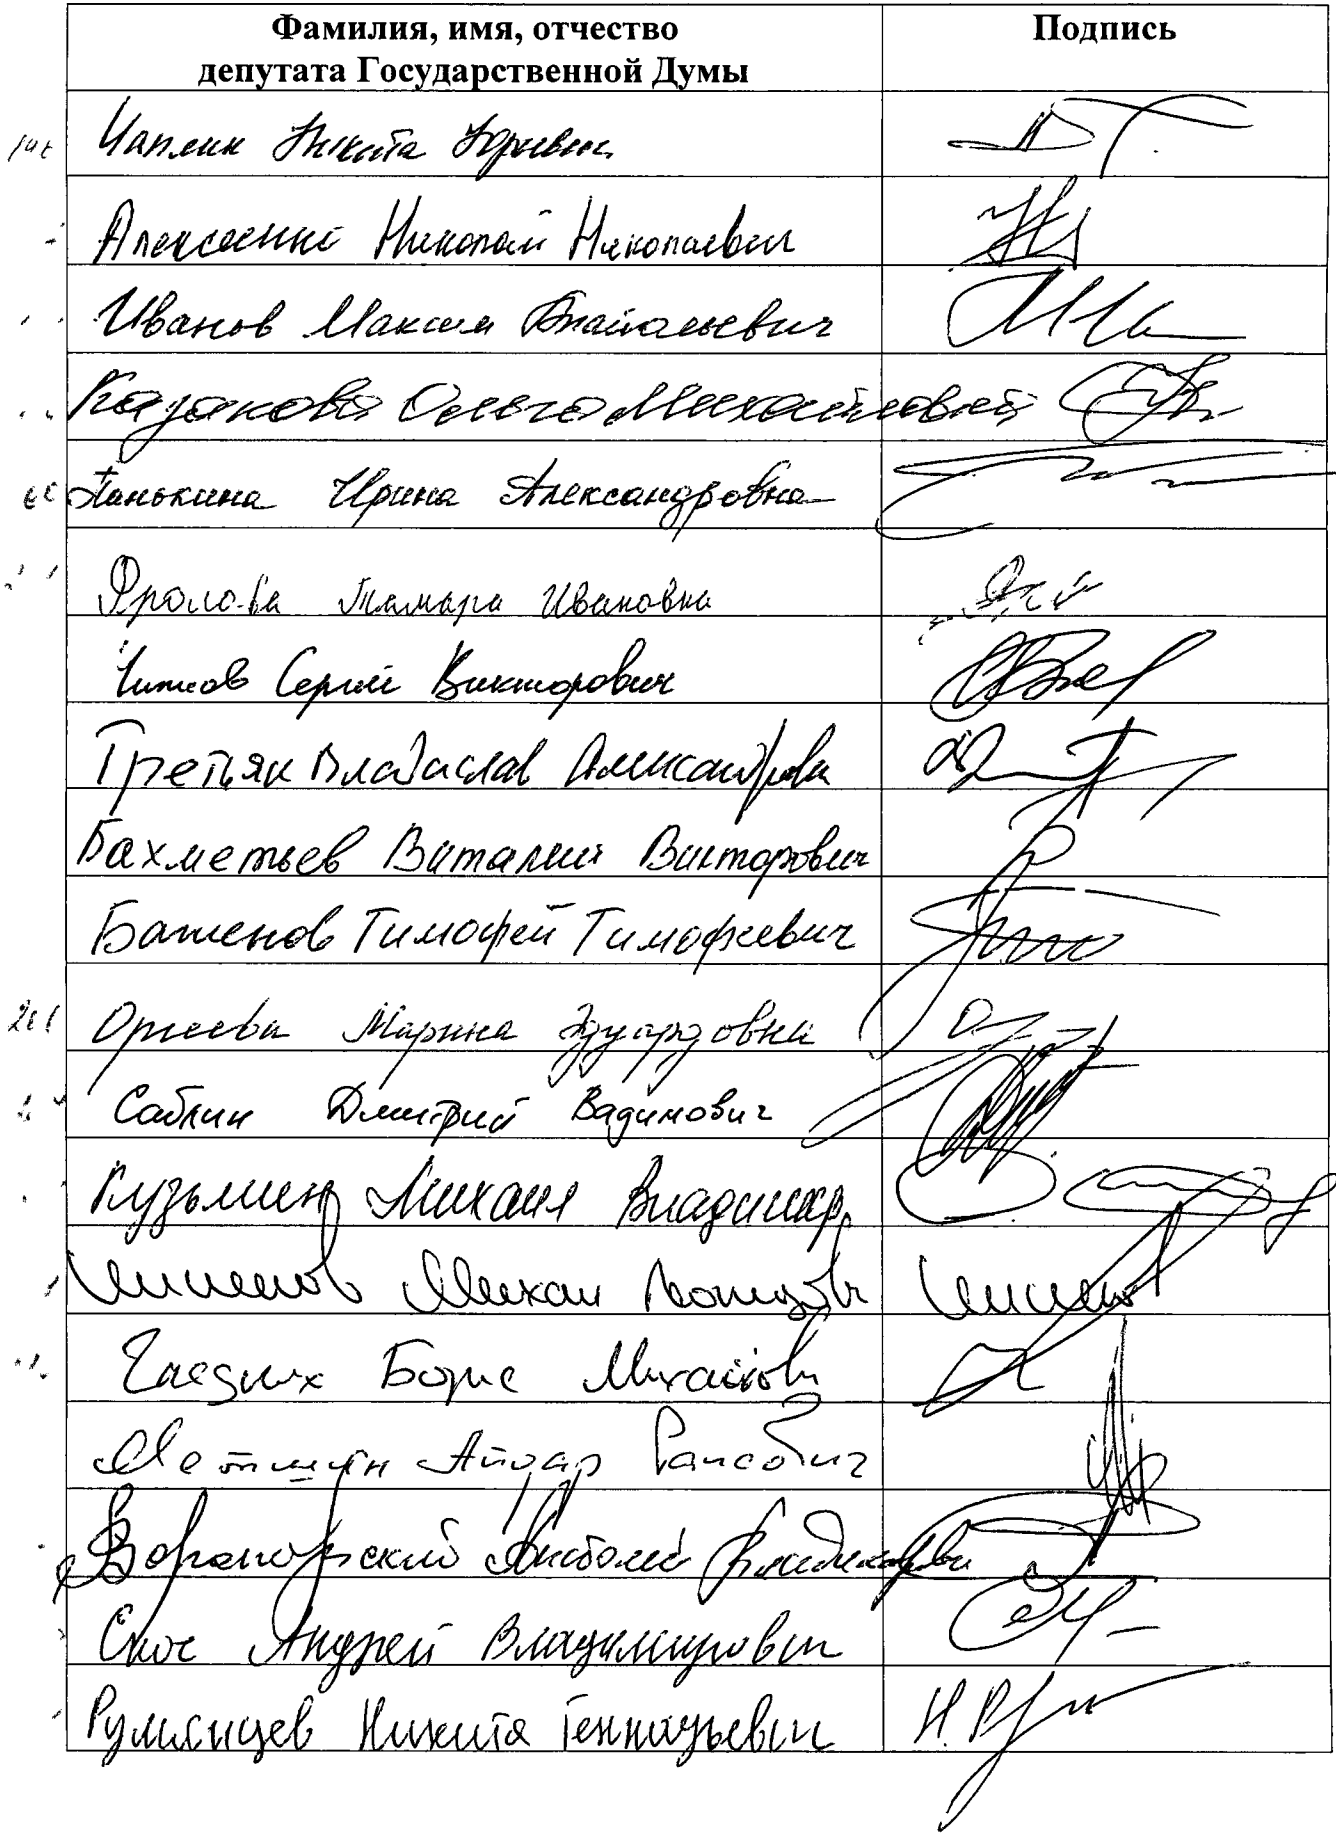 Фамилия, имя, отчество
депутата Государственной Думы
Подпись
Чаплин Никита Юрьевич
Алексеенко Николай Николаевич
Иванов Максим Анатольевич
Казакова Ольга Михайловна
Панькина Ирина Александровна
Фролова Тамара Ивановна
Чижов Сергей Викторович
Третьяк Владислав Александрович
Бахметьев Виталий Викторович
Баженов Тимофей Тимофеевич
Оргеева Марина Эдуардовна
Саблин Дмитрий Вадимович
Кузьмин Михаил Владимир
Михаил
Гладких Борис Михайлович
Метшин Айдар Раисович
Вороновский Анатолий Владимирович
Скоч Андрей Владимирович
Румянцев Никита Геннадьевич